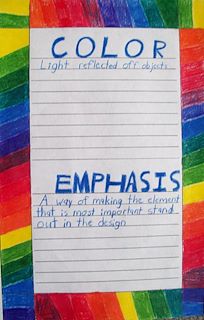 COLOR
Light reflected off objects
EMPHASIS
A way of making the element
that is most important stand
out in the design